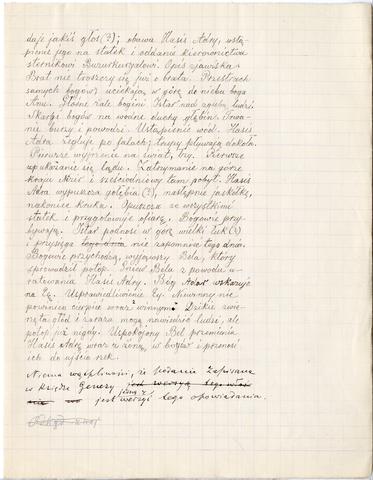 daje jakiś głos(?); obawa Hasis Adry, wstą-
pienie jego na statek i oddanie kierownictwa
sternikowi Buzurkurgalowi. Opis zjawiska.
Brat nie troszczy się już o brata. Przestrach
samych bogów; uciekają w górę do nieba boga
Anu. Głośne żale bogini Istar nad zgubą ludzi.
Skargi bogów na wodne duchy głębin. Trwa-
nie burzy i powodzi. Ustąpienie wód. Hasis
Adra żegluje po falach; trupy pływają dokoła.
Pierwsze wyjrzenie na świat, łzy. Pierwsze
ukazanie się lądu. Zatrzymanie na górze
kraju Nizir i sześciodniowy tam pobyt. Hasis
Adra wypuszcza gołębia (?), następnie jaskółkę,
nakoniec kruka. Opuszcza ze wszystkimi
statek i przygotowuje ofiarę. Bogowie przy-
bywają. Istar podnosi w górę wielki łuk (?)
i przysięga tego dnia nie zapomnieć tego dnia.
Bogowie przychodzą, wyjąwszy Bela, który
sprowadził potop. Gniew Bela z powodu u-
ratowania Hasis Adry. Bóg Adar wskazuje
na Eę. Usprawiedliwienie Ey. Niewinny nie
powinien cierpieć wraz z winnym. Dzikie zwie-
rzęta, głód i zaraza mogą nawiedzić ludzi, ale
potop już nigdy. Uspokojony Bel przemienia
Hasis Adrę wraz z żoną, w bogów i przenosi
ich do ujścia rzek.
Niema wątpliwości, że podanie zapisane
w księdze Genezy
jest wersyą tego opowiadania.